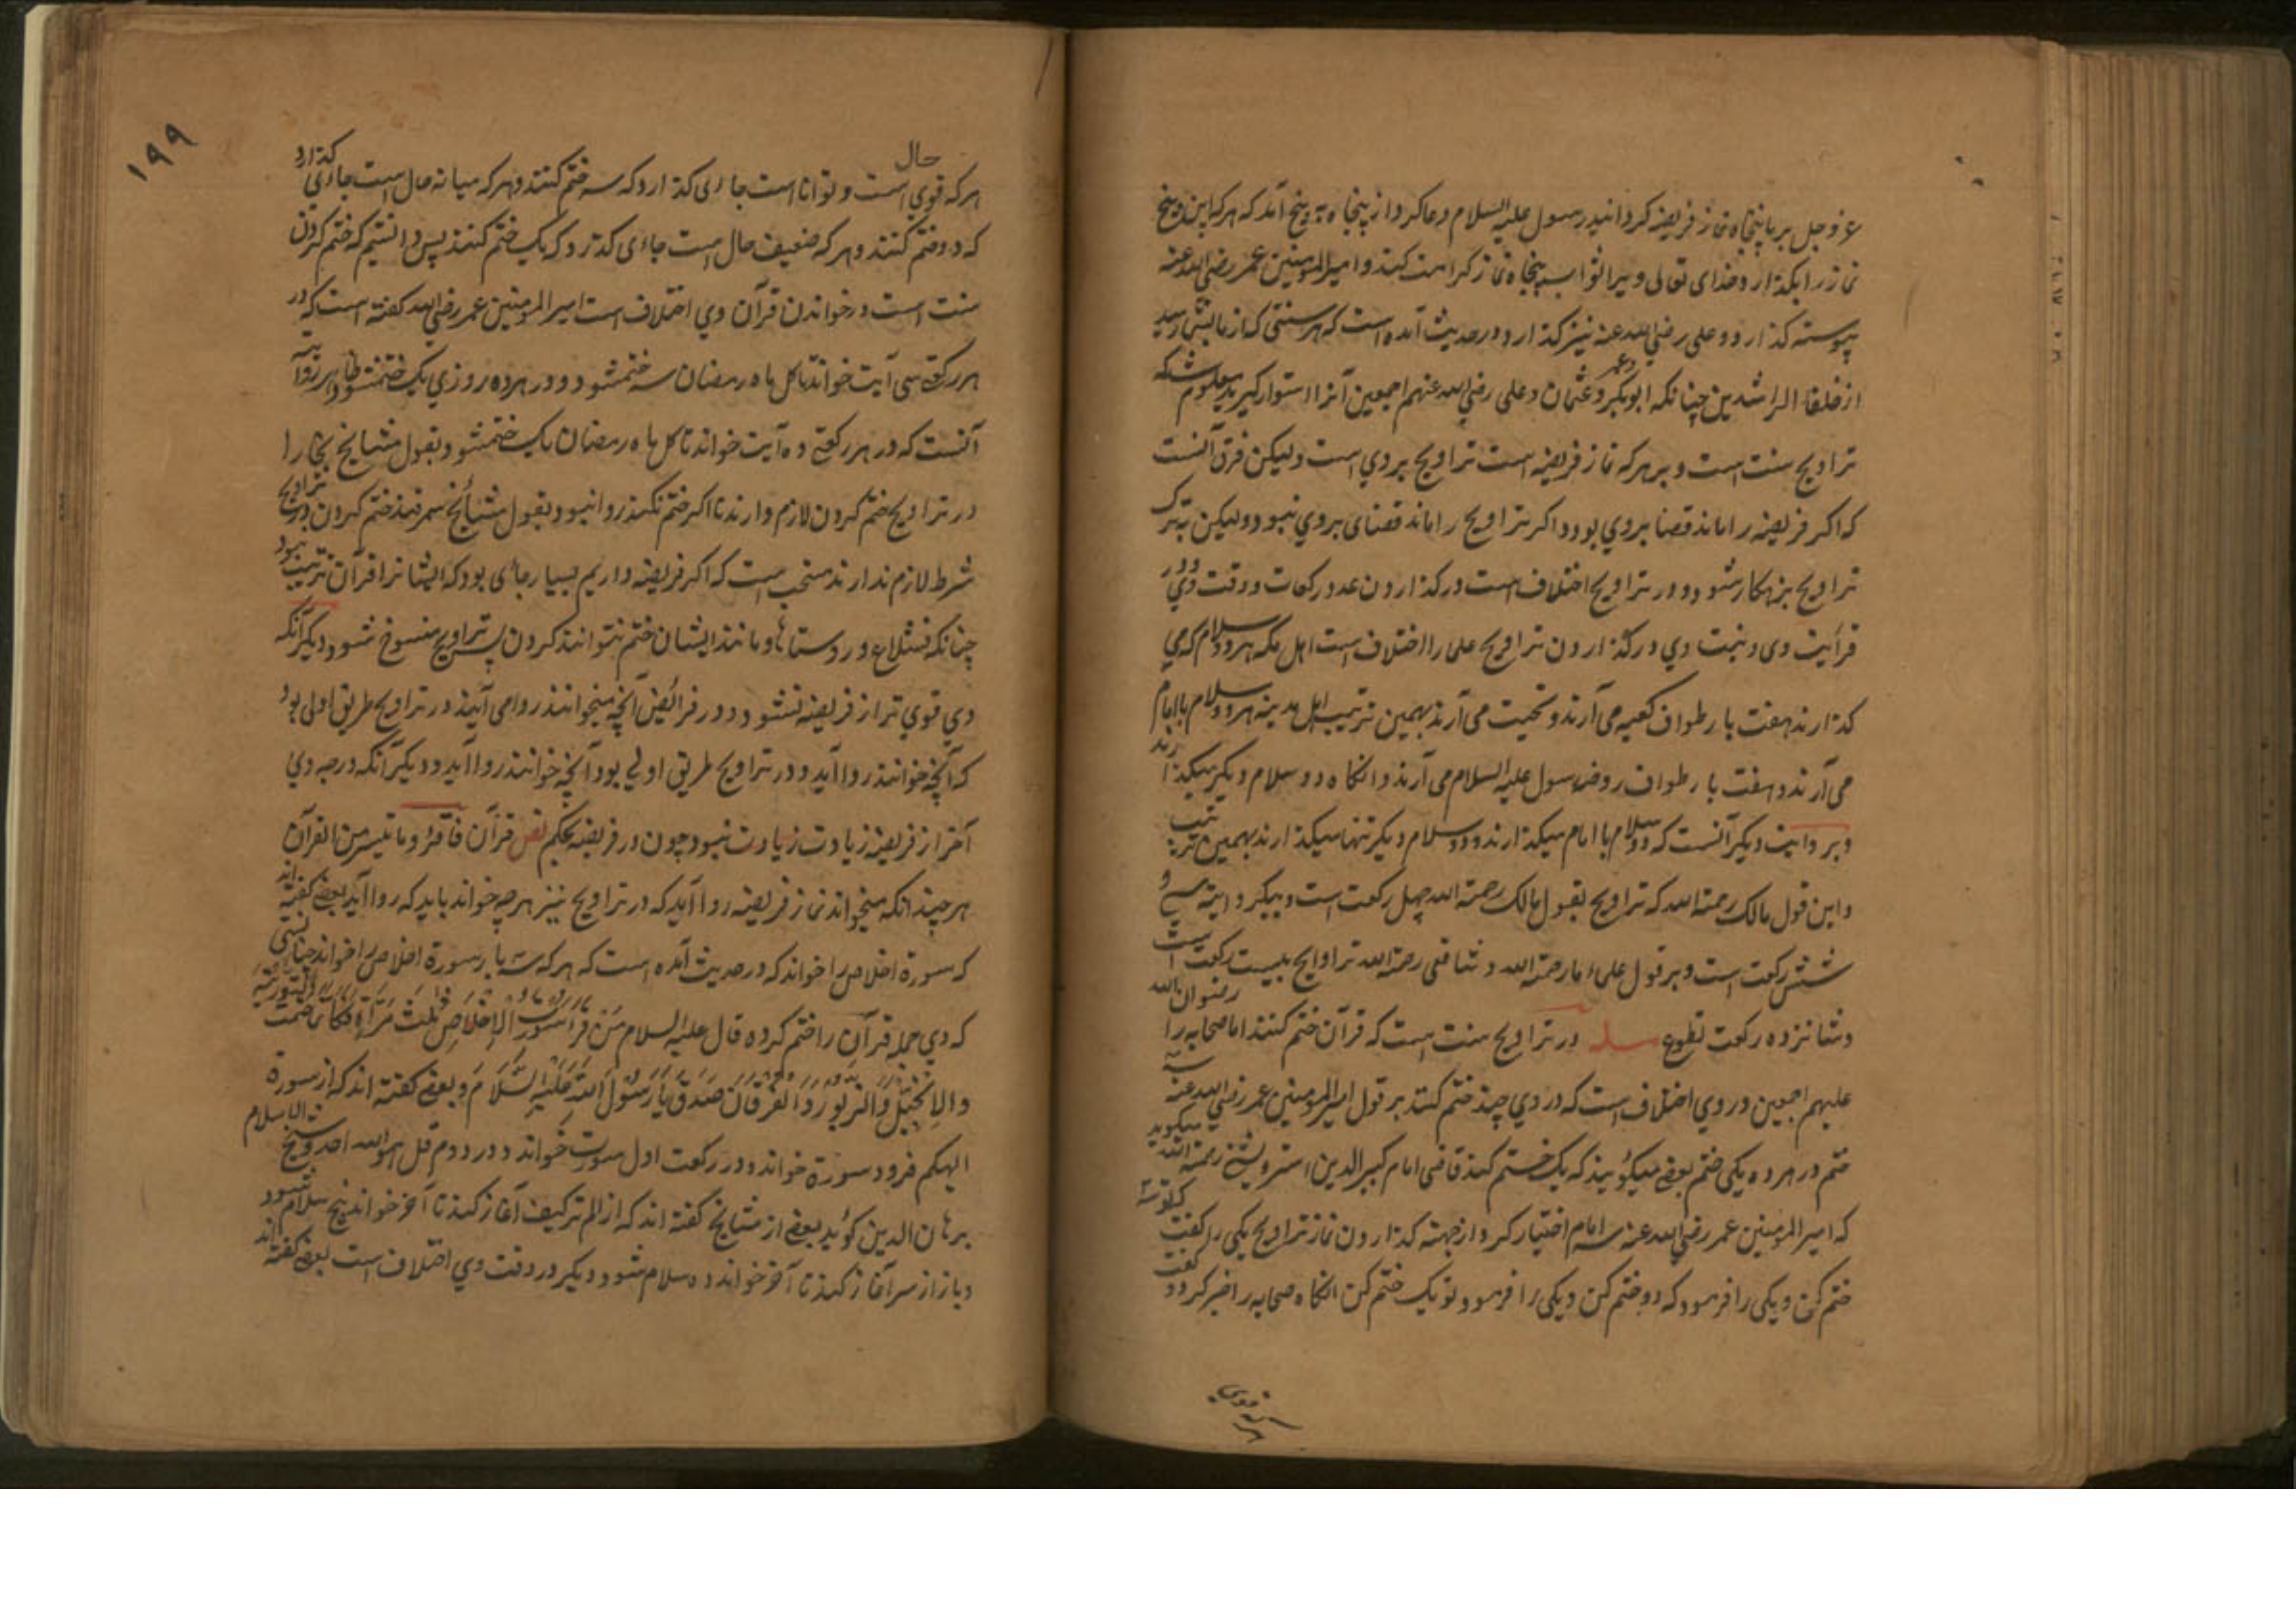 عز و جل بر ما پنجاه نماز فریضه کردانید رسول علیه السلام دعا کرد از پنجاه به پنج آمد که هر که این پنج
نماز را بکذارد خدای تعالی ویرا ثواب پنجاه نماز کرامت کند و امیر المومنین عمر رضی الله عنه
پیوسته کذارد و علی رضی الله عنه نیز کذارد و در حدیث آمده است که هر سنتی که از ما بشما رسید
از خلفاء الراشدین چنانکه ابوبکر و عمر و عثمان و علی رضی الله عنهم اجمعین آنرا استوار کیرید معلوم شد که
تراویح سنت است و بر هر که نماز فریضه است تراویح بر وی است ولیکن فرق آنست
که اکر فریضه را ماند قضا بر وی بود و اکر تراویح را ماند قضای بر وی نبود ولیکن به ترک
تراویح بزهکار شود و در تراویح اختلاف است در کذاردن عدد رکعات و وقت وی و در
قرأیت وی و نیت وی در کذاردن تراویح علما را اختلاف است اهل مکه هر دو سلام که می
کذارند هفت بار طواف کعبه می آرند و تحیت می آرند بهمین ترتیب اهل مدینه هر دو سلام با امام
می آرند و هفت بار طواف روضه رسول علیه السلام می آرند و انکاه دو سلام دیکر میکذارند
و بر وایت دیکر آنست که دو سلام با امام میکذارند و دو سلام دیکر تنها میکذارند بهمین ترتیب
و این قول مالک رحمة الله که تراویح بقول مالک رحمة الله چهل رکعت است و بیکر وایته سی و
شش رکعت است و بر قول علماء ما رحمة الله و شافعی رحمة الله تراوایح بیست رکعت است
و شانزده رکعت تطوع مسله در تراویح سنت است که قرآن ختم کنند اما صحابه را رضوان الله
علیهم اجمعین در وی اختلاف است که در وی چند ختم کنند بر قول امیر المومنین عمر رضی الله عنه سه
ختم در هر ده یکی ختم بعضی میکویند که یک ختم کنند قاضی امام کبیر الدین استروشنی رحمة الله میکوید
که امیر المومنین عمر رضی الله عنه سه امام اختیار کرد از جهته کذاردن نماز تراویح یکی را کفت که تو سه
ختم کن و یکی را فرمود که دو ختم کن و یکی را فرمود تو یک ختم کن انکاه صحابه را خبر کرد و کفت
۱۹۹
هر که قوی حال است و توانا است جاءی کذارد که سه ختم کنند و هر که میانه حال است جاءی کذارد
که دو ختم کنند و هر که ضعیف حال است جاءی کذرد که یک ختم کنند پس دانستیم که ختم کردن
سنت است در خواندن قرآن وی اختلاف است امیر المومنین عمر رضی الله کفته است که در
هر رکعتی سی آیت خواند تا کل ماه رمضان سه ختم شود و در هر ده روزی یک ختم شود و ظاهر روایته
آنست که در هر رکعتی ده آیت خواند تا کل ماه رمضان یک ختم شود و بقول مشایخ بخارا
در تراویح ختم کردن لازم دارند تا اکر ختم نکنند روا نبود و بقول مشایخ سمرقند ختم کردن در تراویح
شرط لازم ندارند مستحب است که اکر فریضه داریم بسیار جای بود که ایشانرا قرآن ترتیب نبود
چنانکه و روستاها و مانند ایشان ختم نتوانند کردن پس تراویح منسوخ شود دیکر آنکه
وی قوی تر از فریضه نشود و در فرائض آنچه میخوانند روا می آید در تراویح طریق اولی بود
که آنچه خوانند روا آید و در تراویح طریق اولی بود آنچه خوانند روا آید و دیکر آنکه درجه وی
آخر از فریضه زیادت زیادت نبود چون در فریضه بحکم نص قرآن فاقرؤ ما تیسر من القرآن
هر چند انکه میخواند نماز فریضه روا آید که در تراویح نیز هر چه خواند باید که روا آید بعضی کفته اند
که سورة اخلاص را خواند که در حدیث آمده است که هر که سه بار سورة اخلاص را خواند چنانستی
که وی جمله قرآن را ختم کرده قال علیه السلام مَن قرأ سورة الاِخلاَصِ ثَلٰثَ مَرَّاةٍ فَکَاَنَّمَا ختمت التورٰیة
والاِنجِیْلَ وَالزبُورَ وَالفُرقَانَ صَدَقَ یَا رَسُولَ اللهِ عَلَیْهِ السَّلاَمَ و بعضی کفته اند که از سورة
الهیکم فرود سورة خواند و در رکعت اول سورت خواند و در دوم قل هو الله احد و شیخ الاسلام
برهان الدین کوید بعضی از مشایخ کفته اند که از الم ترکیف آغاز کند تا آخر خواند پنج سلام شود
و باز از سر آغاز کند تا آخر خواند ده سلام شود و دیکر در وقت وی اختلاف است بعضی کفته اند